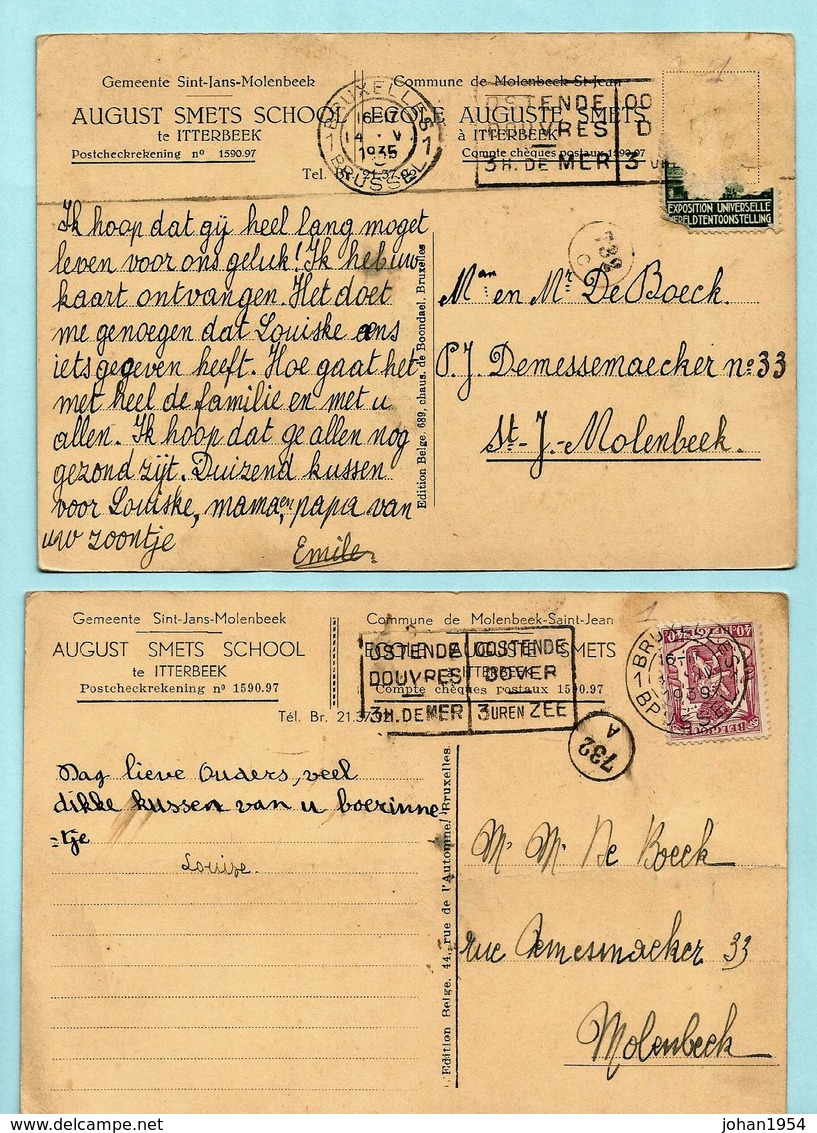 Gemeente Sint-Jans-Molenbeek
AUGUST SMETS SCHOOL
te ITTERBEEK
Postcheckrekening nº 1590.97
Commune de Molenbeek-St-Jean
ECOLE AUGUSTE SMETS
à ITTERBEEK
Compte chèques postaux 1590.97
Tel. Br. 21.37.
BRUXELLES 1
16-17
14 · V
1935
1 BRUSSEL 1
OSTENDE OO
DOUVRES D
3 H. DE MER 3 U
EXPOSITION UNIVERSELLE
WERELDTENTOONSTELLING
1
732
C
Ik hoop dat gij heel lang moget
leven voor ons geluk! Ik heb uw
kaart ontvangen. Het doet
me genoegen dat Louiske ons
iets gegeven heeft. Hoe gaat het
met heel de familie en met u
allen. Ik hoop dat ge allen nog
gezond zijt. Duizend kussen
voor Louiske, mama, en papa van
uw zoontje
Emile
Edition Belge, 689, chaus. de Boondael, Bruxelles
Mam en Mr De Boeck.
P.J. Demessemaecker nº 33
St-J.-Molenbeek.
Gemeente Sint-Jans-Molenbeek
AUGUST SMETS SCHOOL
te ITTERBEEK
Postcheckrekening nº 1590.97
Commune de Molenbeek-Saint-Jean
ECOLE AUGUSTE SMETS
à ITTERBEEK
Compte chèques postaux 1590.97
Tél. Br. 21.37.
OSTENDE OOSTENDE
DOUVRES DOVER
3 H. DE MER 3 UREN ZEE
1
1 BRUXELLES 1
16-
IV
193
BRUSSEL
BELGIQUE
40 BELGIË 40
732
A
Dag lieve Ouders, veel
dikke kussen van u boerinne
=tje
Louise.
Edition Belge, 44, rue de l'Automne, Bruxelles
M. M. De Boeck
rue Demesmaeker 33
Molenbeek
delcampe.net
johan1954